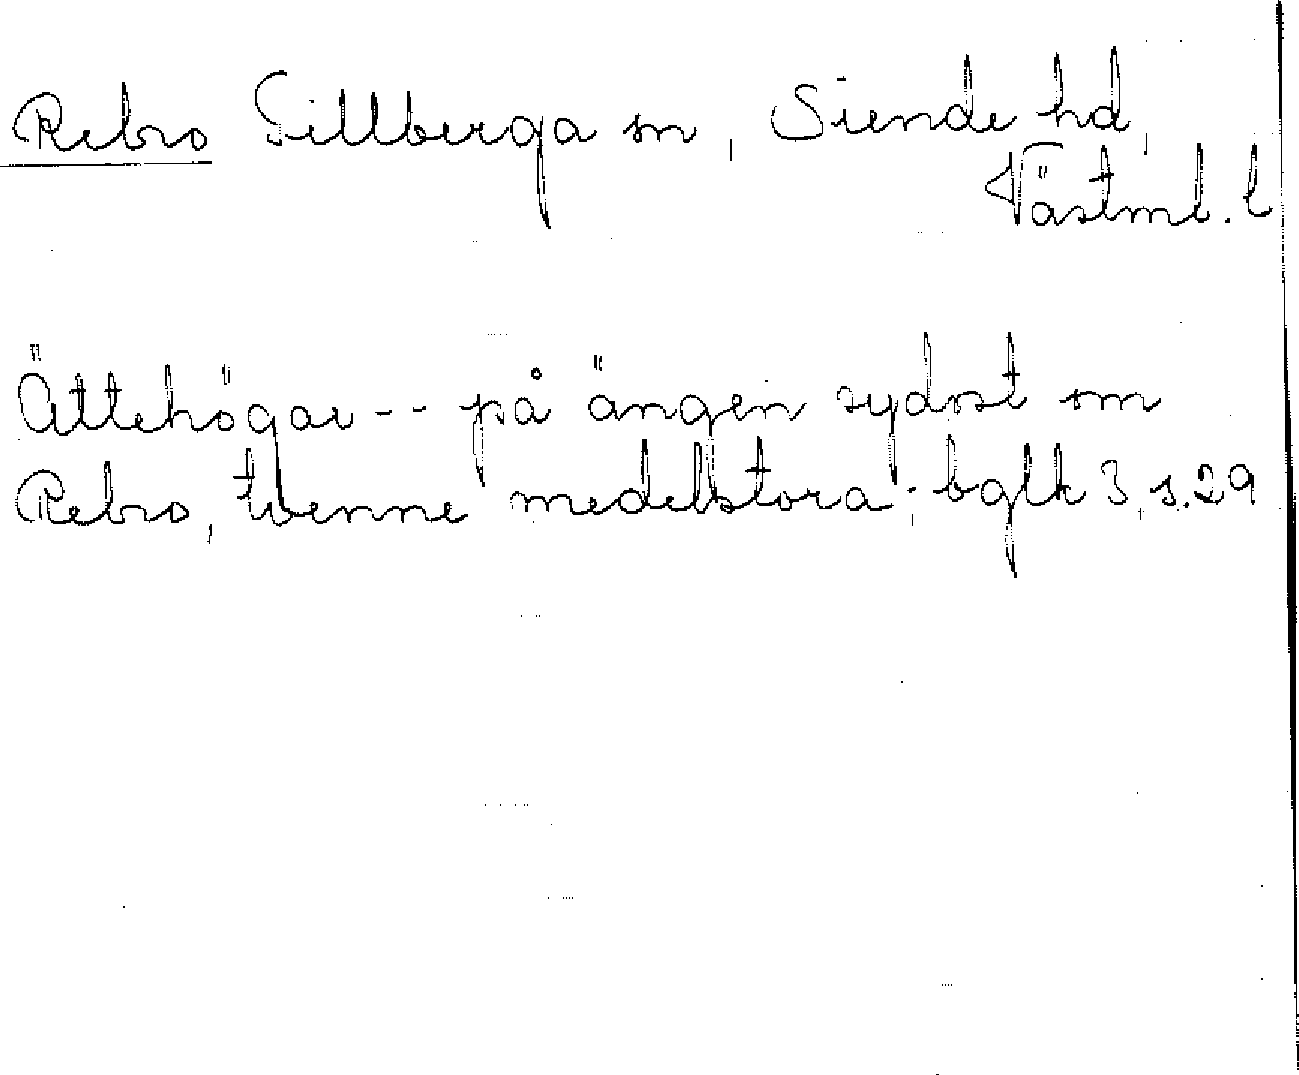 Rebro Tillberga sn, Siende hd,
Västml. l
Ättehögar -- på ängen sydost om
Rebro, tvenne medelstora; bglk 3, s. 29